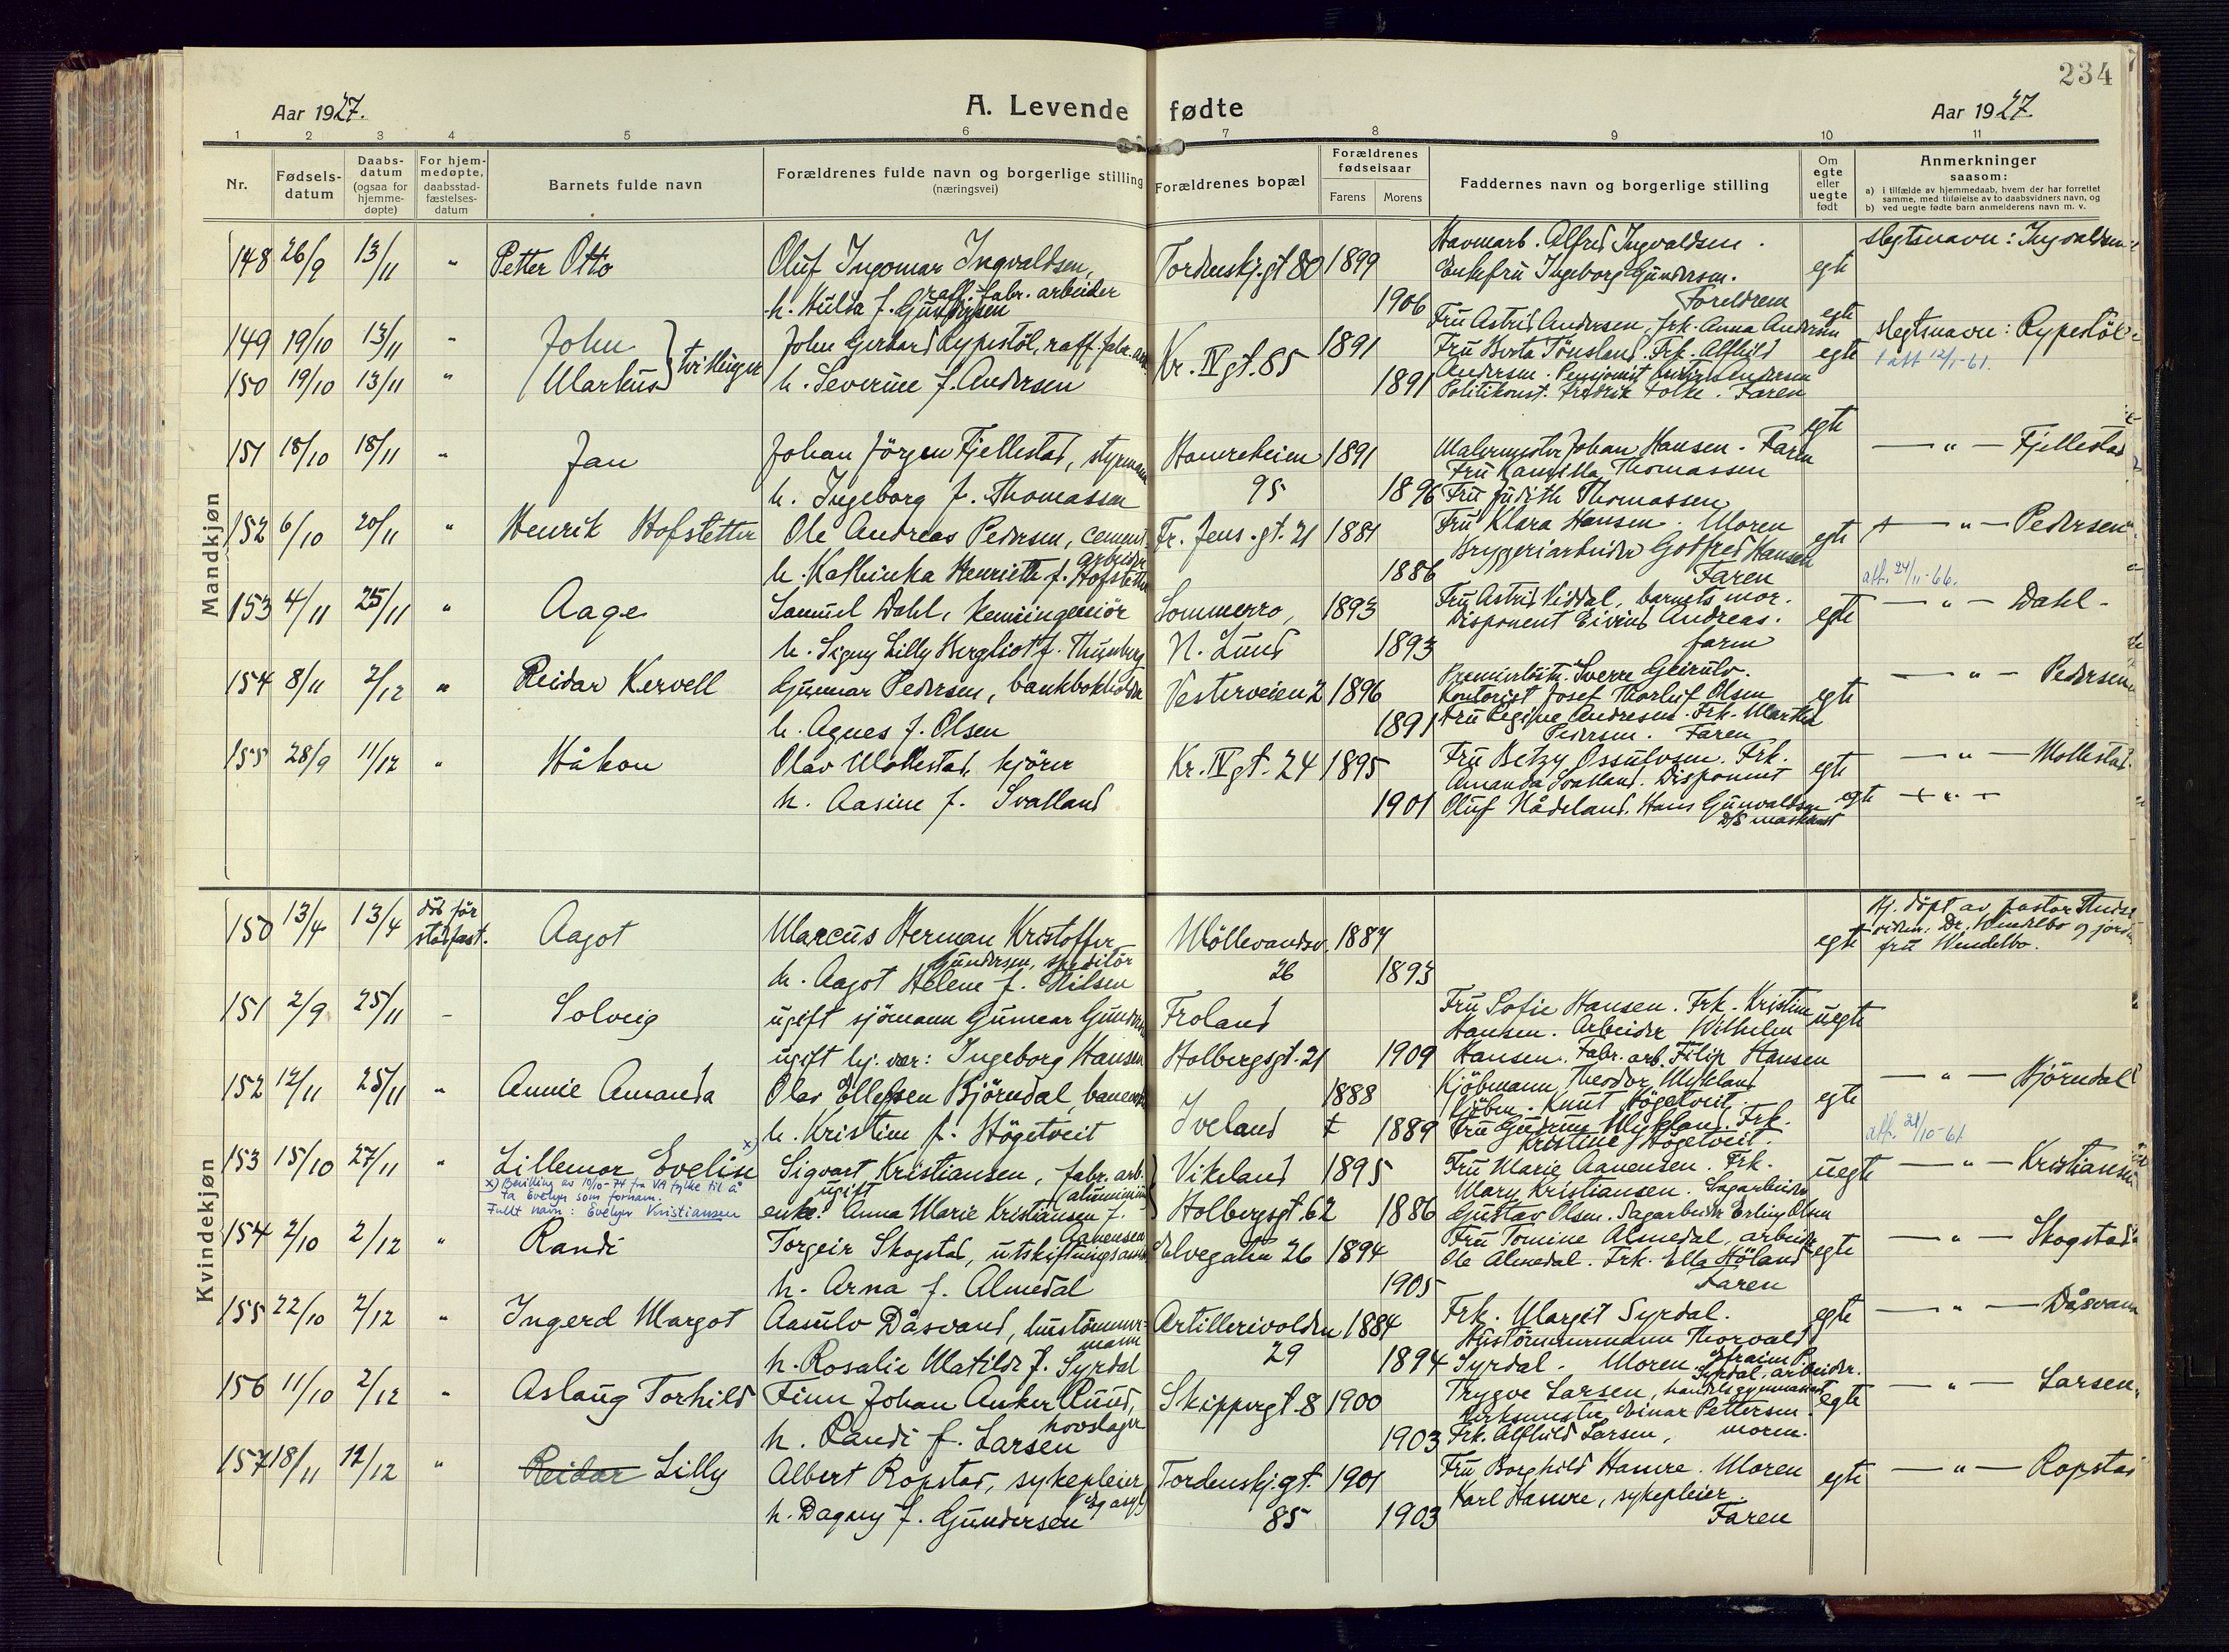 234
Aar 1927.
A. Levende fødte
Aar 1927.
1 2 3 4 5 6 7 8 9 10 11
Nr.
Fødsels-
datum
Daabs-
datum
(ogsaa for
hjemme-
døpte)
For hjem-
medøpte,
daabsstad-
fæstelses-
datum
Barnets fulde navn
Forældrenes fulde navn og borgerlige stilling
(næringsvei)
Forældrenes bopæl
Forældrenes
fødselsaar
Farens Morens
Faddernes navn og borgerlige stilling
Om
egte
eller
uegte
født
Anmerkninger
saasom:
a) i tilfælde av hjemmedaab, hvem der har forrettet
samme, med tilføielse av to daabsvidners navn, og
b) ved uegte fødte barn anmelderens navn m. v.
Mandkjøn
148 26/9 13/11 " Petter Otto
Oluf Ingomar Ingvaldsen,
raff. fabr. arbeider
h. Hulda f. Gundersen
Tordenskj.gt 80 1899
1906
Havnearb. Alfred Ingvaldsen.
Enkefru Ingeborg Gundersen.
Foreldrene
egte
slegtsnavn: Ingvaldsen
149 19/10 13/11 " John
150 19/10 13/11 " Markus
tvillinger
John Gerhard Rypestöl, raff. fabr. arb.
h. Severine f. Andersen
Kr. IV gt. 85 1891
1891
Fru Astrid Andersen, frk. Anna Andersen
Fru Berta Tönsland. Frk. Alfhild
Andersen. Pensjonist Andersen
Politikonst. Fredrik Folke. Faren
egte
egte
slegtsnavn: Rypestöl
1 att 12/1-61.
151 18/10 18/11 " Jan
Johan Jörgen Fjellestad, styrmann
h. Ingeborg f. Thomassen
Hamreheien 1891
95 1896
Malermester Johan Hansen. Faren
Fru Kamilla Thomassen
Fru Judith Thomassen
egte
— " — Fjellestad
152 6/10 20/11 " Henrik Hofstetter
Ole Andreas Pedersen, cement
arbeider
h. Kathinka Henriette f. Hofstetter
Fr. Jens. gt. 21 1881
1886
Fru Klara Hansen. Moren
Bryggeriarbeider Godfred Hansen
Faren
egte
— " — Pedersen
att. 24/11-66.
153 4/11 25/11 " Aage
Samuel Dahl, kemiingeniör
h. Signy Lilly Bergliot f. Thunberg
Sommerro, 1893
N. Lund 1893
Fru Astrid Viddal, barnets mor.
Disponent Eivind Andreas.
faren
egte
— " — Dahl
154 8/11 2/12 " Reidar Kervell
Gunnar Pedersen, bankbokholder
h. Agnes f. Olsen
Vesterveien 2 1896
1891
Premierlöitn. Sverre Geirulv.
Kontorist Josef Thorleif Olsen
Fru Regine Andresen. Frk. Martha
Pedersen. Faren
egte
— " — Pedersen
155 28/9 11/12 " Håkon
Olav Mollestad, kjörer
h. Aasine f. Svaland
Kr. IV gt. 24 1895
1901
Fru Betzy Ossulvsen. Frk.
Amanda Svaland. Disponent
Oluf Hådeland. Hans Gunvaldsen
D/S maskinist
egte
egte
— " — Mollestad.
— " —
Kvindekjøn
150 13/4 13/4 död för stadfast. Aagot
Marcus Herman Kristoffer
Gundersen, speditör
h. Aagot Helene f. Nilsen
Möllevandsv. 1887
26 1893
egte
Hj. döpt av pastor
viden: Dr. Wendelbo og jordm
fru Wendelbo.
151 2/9 25/11 - Solveig
ugift sjömann Gunnar Gundersen
ugift hj. vær: Ingeborg Hansen
Froland
Holbergsgt. 21 1909
Fru Sofie Hansen. Frk. Kristine
Hansen. Arbeider Wilhelm
Hansen. Fabr. arb. Filip Hansen
uegte
152 12/11 25/11 " Annie Amanda
Olav Ellefsen Björndal, banearb.
h. Kristine f. Högetveit
Iveland 1888
1889
Kjöbmann Theodor Mykland
Kjöbm. Knut Högetveit.
Fru Gudrun Mykland. Frk.
Kristine Högetveit.
egte
— " — Björndal
att. 21/10-61
153 15/10 27/11 " Lillemor Eveline x)
x) Bevilling av 10/10-74 fra VA fylke til å
ta Evelyn som fornavn.
Fullt navn: Evelyn Kristiansen
Sigvart Kristiansen, fabr. arb.
ugift aluminium
enke: Anna Marie Kristiansen f.
Aanensen
Vikeland 1895
Holbergsgt. 62 1886
Fru Marie Aanensen. Frk.
Mary Kristiansen. Sagarbeider
Gustav Olsen. Sagarbeider Erling Olsen
uegte
— " — Kristiansen
154 2/10 2/12 " Randi
Torgeir Skogstad, utskiftningsass.
h. Arna f. Almedal
Elvegaten 26 1894
1905
Fru Tomine Almedal, arbeider
Ole Almedal. Frk. Ella Höland
Faren
egte
— " — Skogstad
155 22/10 2/12 " Ingerd Margot
Aasulv Dåsvand, hustömmer-
mann
h. Rosalie Matilde f. Syrdal
Artillerivolden 1884
29 1894
Frk. Margit Syrdal.
Hustömmermann Thorvald
Syrdal. Moren. Efraim P.
Syrdal, arbeider.
egte
— " — Dåsvann
156 11/10 2/12 " Aslaug Torhild
Finn Johan Anker Ruud,
hovslager
h. Randi f. Larsen
Skippergt. 8 1900
1903
Trygve Larsen, handelsgymnasiast
Verksmester Einar Pettersen
Frk. Alfhild Larsen, moren.
egte
— " — Larsen
157 18/11 12/12 " Reidar Lilly
Albert Ropstad, sykepleier
(Eg asyl)
h. Dagny f. Gundersen
Tordenskj.gt. 1901
85 1903
Fru Borghild Hamre. Moren
Karl Hamre, sykepleier.
Faren
egte
— " — Ropstad